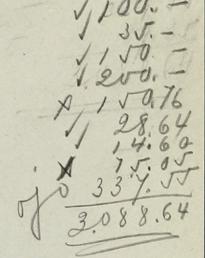 √ 100.-
√ 35.-
√ 150.-
√ 200.-
x 150.76
√ 28.64
√ 14.60
x 75.05
337.55
3.088.64